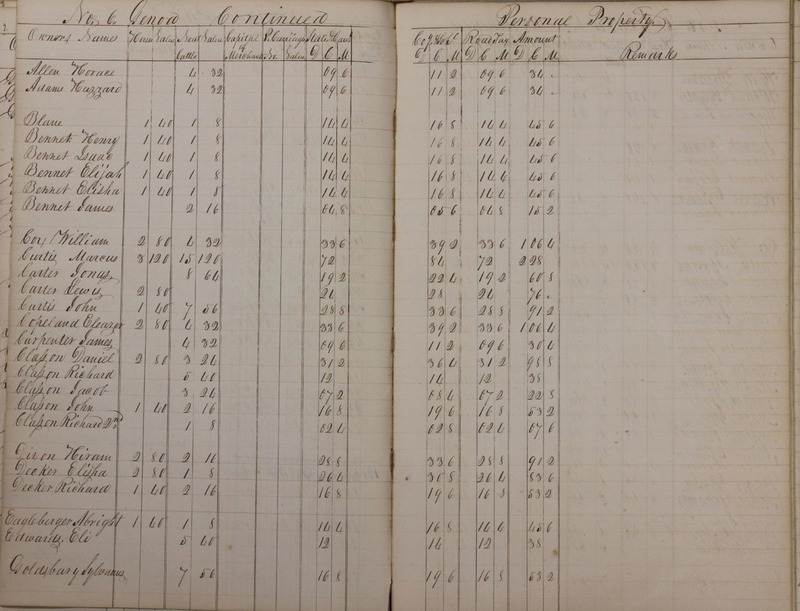 No. 6 Genoa Continued Personal Property
Owners Names Horses Value Neat Value Capital P. Carriage State & Canal Co. & School Road Tax Amount
Cattle Merchandise Value D C M D C M D C M D C M Remarks
Allen Horace 4 32 09 6 11 2 09 6 30 4
Adams Hazzard 4 32 09 6 11 2 09 6 30 4
Blane 1 40 1 8 14 4 16 8 14 4 45 6
Bennet Henry 1 40 1 8 14 4 16 8 14 4 45 6
Bennet Isaac 1 40 1 8 14 4 16 8 14 4 45 6
Bennet Elijah 1 40 1 8 14 4 16 8 14 4 45 6
Bennet Elisha 1 40 1 8 14 4 16 8 14 4 45 6
Bennet James 2 16 04 8 05 6 04 8 15 2
Cox William 2 80 4 32 33 6 39 2 33 6 1 06 4
Curtis Marcus 3 120 15 120 72 84 72 2 28
Carter Jonas 8 64 19 2 22 4 19 2 60 8
Carter Lewis 2 80 24 28 24 76
Curtis John 1 40 7 56 28 8 33 6 28 8 91 2
Copeland Eleazer 2 80 4 32 33 6 39 2 33 6 1 06 4
Carpenter James 4 32 09 6 11 2 09 6 30 4
Clapson Daniel 2 80 3 24 31 2 36 4 31 2 98 8
Clapson Richard 5 40 12 14 12 38
Clapson Jacob 3 24 07 2 08 4 07 2 22 8
Clapson John 1 40 2 16 16 8 19 6 16 8 53 2
Clapson Richard 2nd 1 8 02 4 02 8 02 4 07 6
Hiram 2 80 2 16 28 8 33 6 28 8 91 2
Decker Elisha 2 80 1 8 26 4 30 8 26 4 83 6
Decker Richard 1 40 2 16 16 8 19 6 16 8 53 2
Eagleberger Abright 1 40 1 8 14 4 16 8 14 4 45 6
Edwards Eli 5 40 12 14 12 38
Goldsbury Sylvanus 7 56 16 8 19 6 16 8 53 2